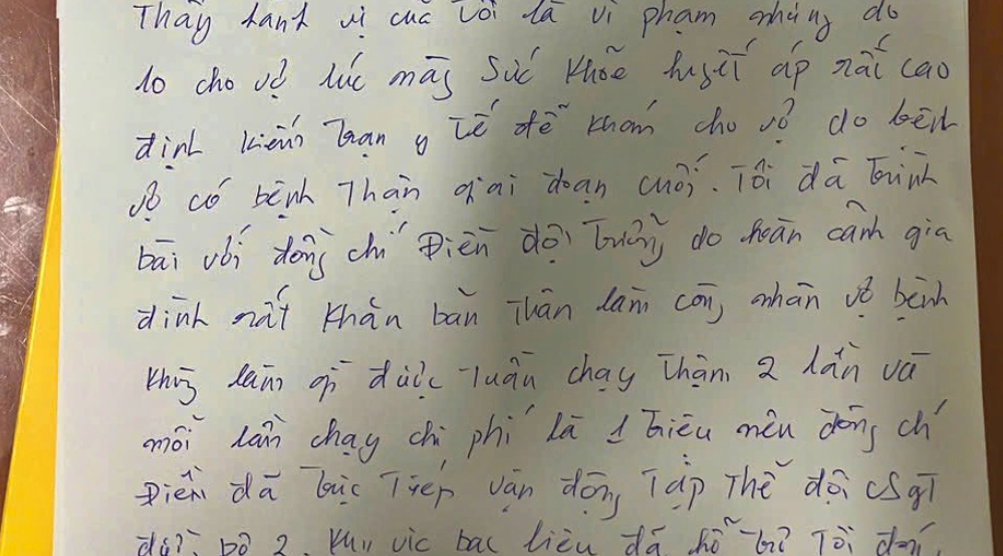 Thấy hành vi của tôi là vi phạm nhưng do
lo cho vợ lúc máy sức khỏe huyết áp rất cao
định kiến trạn y tế để khám cho vợ do bệnh
vợ có bệnh Thận giai đoạn cuối. Tôi đã trình
bài với đồng chí Điền đội trưởng do hoàn cảnh gia
đình rất khăn bản thân làm công nhân vợ bệnh
không làm gì được Tuần chạy thận 2 lần và
mỗi lần chạy chi phí là 1 triệu nên đồng chí
Điền đã trực tiếp vận động tập thể đội CSGT
đường bộ 2. Khu vực bạc liêu đã hỗ trợ tôi